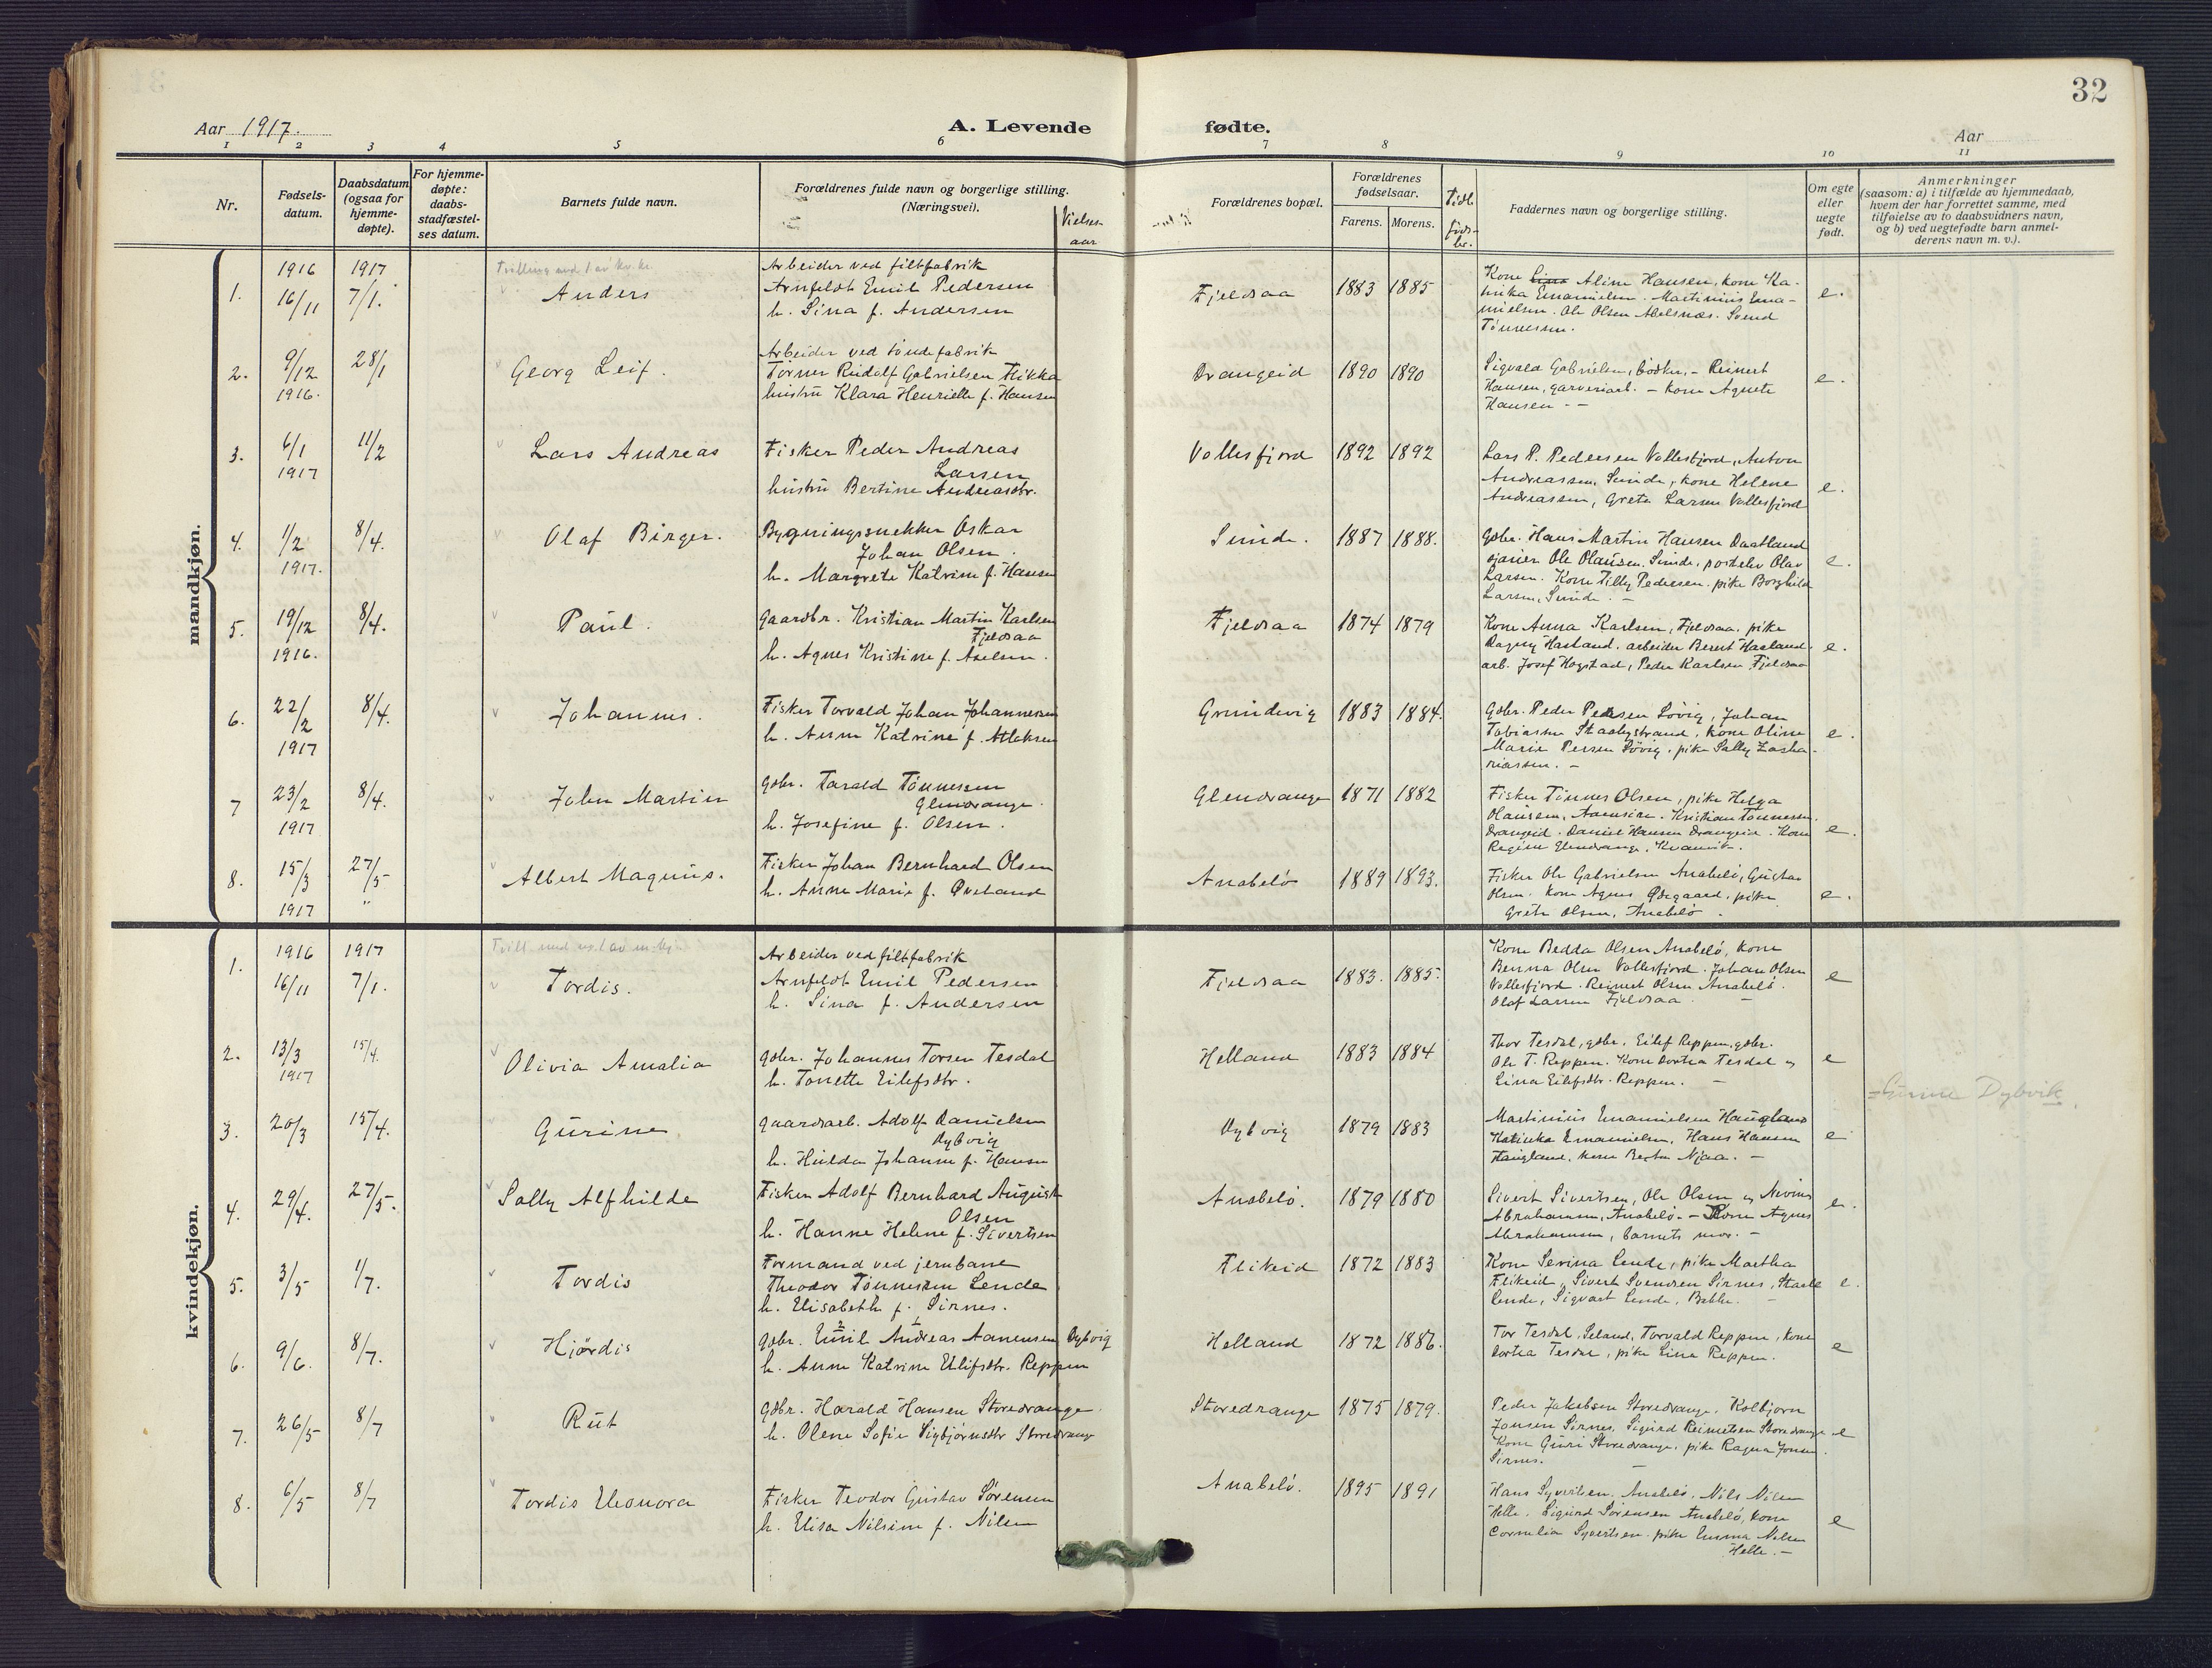 32
Aar 1917.
A. Levende fødte.
Aar
1 2 3 4 5 6 7 8 9 10 11
Nr.
Fødsels-
datum.
Daabsdatum
(ogsaa for
hjemme-
døpte).
For hjemme-
døpte:
daabs-
stadfæstel-
ses datum.
Barnets fulde navn.
Forældrenes fulde navn og borgerlige stilling.
(Næringsvei).
Vielses-
aar
Forældrenes bopæl.
Forældrenes
fødselsaar.
Farens. Morens.
Tidl.
føds-
br.
Faddernes navn og borgerlige stilling.
Om egte
eller
uegte
født.
Anmerkninger
(saasom: a) i tilfælde av hjemmedaab,
hvem der har forrettet samme, med
tilføielse av to daabsvidners navn,
og b) ved uegtefødte barn anmel-
derens navn m. v.).
mandkjøn.
1.
1916
16/11
1917
7/1.
Tvilling med 1 av kv. kj.
Anders
Arbeider ved filtfabrik
Arnfeldt Emil Pedersen
h. Sina f. Andersen
Fjeldsaa
1883 1885
Kone Aline Hansen, kone Ka-
Emanuelsen. Martinius Ema-
nuelsen. Ole Olsen Abelsnæs. Svend
Tönnessen.
e.
2.
9/12
1916.
28/1
Georg Leif.
Arbeider ved töndefabrik
Torner Rudolf Gabrielsen Flikka
hustru Klara Henriette f. Hansen
Drangeid
1890 1890
Sigvald Gabrielsen, bödker, - Reinert
Hansen, garveriarb. - kone Agnete
Hansen - -
e.
3.
6/1
1917
11/2
Lars Andreas
Fisker Peder Andreas
Larsen
hustru Bertine Andreasdtr.
Vollesfjord
1892 1892
Lars P. Pedersen Vollesfjord, Anton
Andreassen, Sunde, kone Helene
Andreassen, Grete Larsen Vollesfjord
e.
4.
1/2
1917.
8/4.
Olaf Birger.
Bygningssnekker Oskar
Johan Olsen.
h. Margrete Katrine f. Hansen
Sunde.
1887 1888.
Gdbr. Hans Martin Hansen Daatland
Ole Olausen, Sunde, Olav
Larsen. Kone Tilly Pedersen. pike Borghild
Larsen, Sunde. -
e.
5.
19/12
1916.
8/4.
Paul.
Gaardbr. Kristian Martin Karlsen
Fjeldsaa
h. Agnes Kristine f. Axelsen.
Fjeldsaa
1874 1879
Kone Anna Karlsen, Fjeldsaa. pike
Dagny Haaland. arbeider Berent Haaland.
arb. Josef Hogstad, Peder Karlsen Fjeldsaa
e.
6.
22/2
1917
8/4.
Johannes.
Fisker Torvald Johan Johannessen
h. Anne Katrine f. Atlaksen
Grundevig
1883 1884.
Gdbr. Peder Pedersen Lövig, Johan
Tobiassen Staalegstrand, kone Oline
Marie Persen Lövig, pike Sally Zacha-
riassen. -
e.
7
23/2
1917
8/4.
John Martin
Gdbr. Tarald Tönnessen
Glendrange.
h. Josefine f. Olsen.
Glendrange
1871 1882
Fisker Tönnes Olsen, pike Helga
Olausen, Aamsira. Kristian Tönnessen
Drangeid. Daniel Hansen Drangeid. Kone
Regine Glendrange, Kvanvik.
e.
8.
15/3
1917
27/5
"
Albert Magnus.
Fisker Johan Bernhard Olsen
h. Anne Marie f. Øveland
Anabelö
1889 1893.
Fisker Ole Gabrielsen Anabelö, Gustav
Olsen. kone Agnes Ødegaard, pike
Grete Olsen, Anabelö.
e.
kvindekjøn.
1.
1916
16/11
1917
7/1.
Tvill. med nr. 1 av m. kj.
Tordis.
Arbeider ved filtfabrik
Arnfeldt Emil Pedersen
h. Sina f. Andersen
Fjeldsaa
1883. 1885.
Kone Bedda Olsen Anabelö, kone
Benna Olsen Vollesfjord. Johan Olsen
Vollesfjord. Reinert Olsen Anabelö.
Olaf Larsen Fjeldsaa -
e
2.
13/3
1917
15/4.
Olivia Amalia
Gdbr. Johannes Torsen Tesdal
h. Tonette Eilefsdtr.
Helland
1883 1884
Thor Tesdal, gdbr. Eilef Reppen, gdbr.
Ole T. Reppen. Kone Dortea Tesdal og
Lina Eilefsdtr. Reppen. -
e
3.
20/3
15/4.
Gurine
Gaardarb. Adolf Danielsen
Dybvig
h. Hulda Johanne f. Hansen
Dybvig
1879 1883
Martinius Emanuelsen Haugland
Katinka Emanuelsen, Hans Hansen
Haugland, kone Berta Njaa. -
e
= Gunne Dybvik
4.
29/4.
27/5.
Sally Alfhilde
Fisker Adolf Bernhard August
Olsen
h. Hanne Helene f. Sivertsen
Anabelö.
1879 1880
Sivert Sivertsen, Ole Olsen og Nevius
Abrahamsen, Anabelö. - Kone Agnes
Abrahamsen, barnets mor. -
e.
5.
3/5
1/7.
Tordis
Formand ved jernbane
Theodor Tönnessen Lende
h. Elisabeth f. Sirnes.
Flikeid
1872 1883
Kone Serina Lende, pike Martha
Flikeid, Sivert Svendsen Sirnes,
Lende, Sigvart Lende, Bakke. -
e.
6.
9/6.
8/7.
Hjördis
Gdbr. Emil Andreas Aanensen Dybvig
h. Anne Katrine Eilifsdtr. Reppen
Helland
1872 1886.
Tor Tesdal, Seland, Torvald Reppen, kone
Dortea Tesdal, pike Lina Reppen.
e
7.
26/5
8/7
Rut
Gdbr. Harald Hansen Storedrange.
h. Olene Sofie Sigbjörnsdtr Storedrange
Storedrange
1875 1879.
Peder Jakobsen Storedrange, Kolbjörn
Jonsen Sirnes, Sigurd Reinertsen Storedrange
Kone Guri Storedrange, pike Ragna Jonsen
Sirnes. -
e
8.
6/5
8/7
Tordis Eleonora
Fisker Teodor Gustav Sörensen
h. Elisa Nilsine f. Nilsen
Anabelö.
1895 1891
Hans Syvertsen, Anabelö. Nils Nilsen
Helle. Sigurd Sörensen Anabelö, kone
Cornelia Syvertsen. pike Emma Nilsen
Helle. -
e